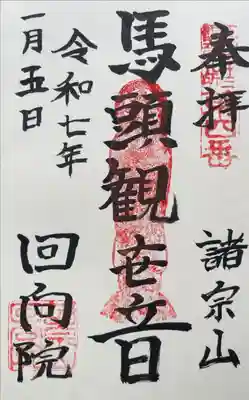 奉拝
諸宗山
馬頭観世音
令和七年
一月五日
回向院